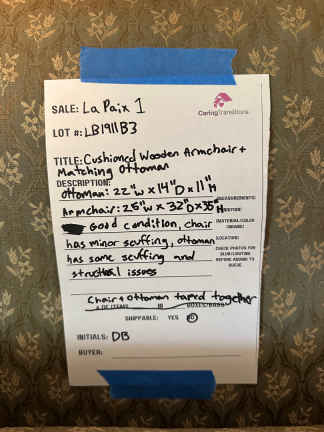 SALE: La Paix 1
CaringTransitions
LOT #: LB1911B3
TITLE: Cushioned Wooden Armchair +
Matching Ottoman
DESCRIPTION:
Ottoman: 22"W x 14"D x 11"H
MEASUREMENTS:
Armchair: 25"W x 32"D x 35"H
Good condition, chair
MATERIAL/COLOR
has minor scuffing, ottoman
LOCATION:
has some scuffing and
CHECK PHOTOS FOR
BEFORE ADDING TO
structural issues
Chair + Ottoman taped together
# OF ITEMS IN BOXES/BAGS
SHIPPABLE: YES NO
INITIALS: DB
BUYER: